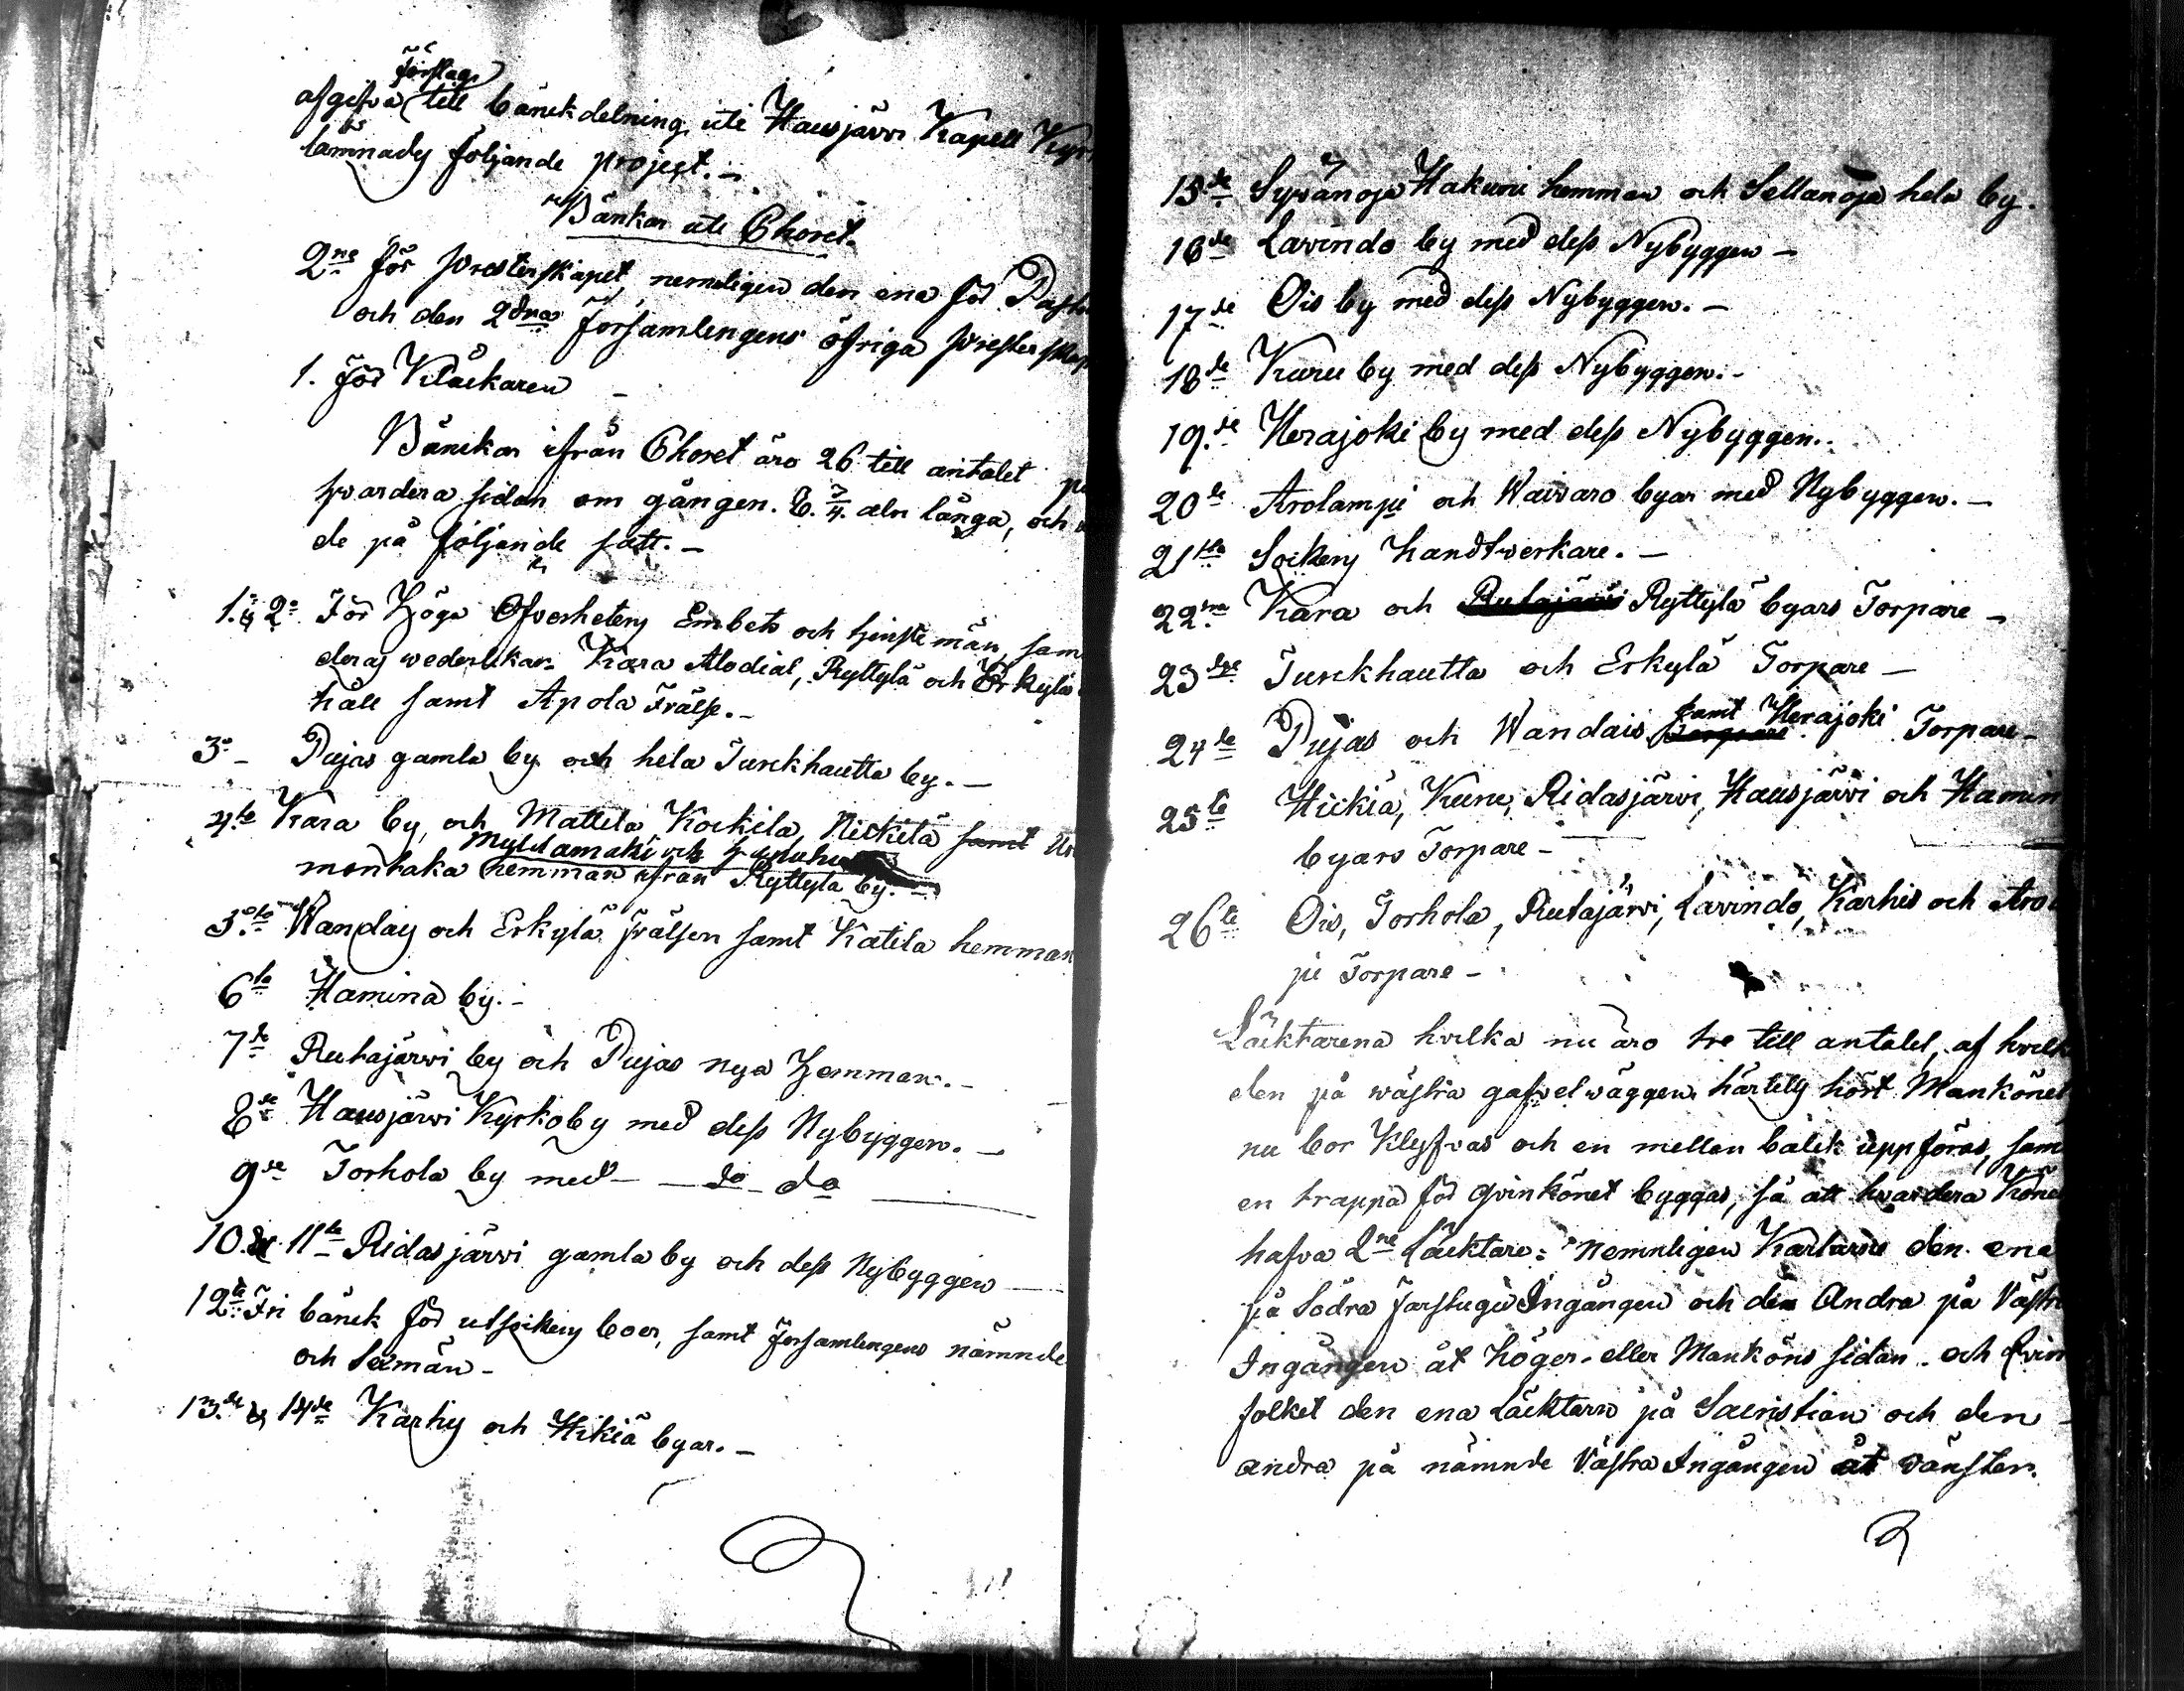 förslag
afgifva till bänckdelning uti Hausjärvi Kapell
lämnades följande project.-
Bänkar uti Choret.
2ne för Presterskapet, nemligen den ena för
och den 2dra Församlingens öfriga
1. för Klåckaren -
Bänckar ifrån Choret äro 26 till antalet
hvardera sidan om gången. 6. 3/4. aln långa, och
de på följande sätt.-
1. & 2. För Höga Öfverhetens Embets och tjenstemän, sam
deras wederlikar. Kara Alodial, Ryttylä och Erkylä
håll samt Apola Frälse.-
3. - Pujas gamla by och hela Turckhautta by.-
4.te Kara by, och Mattila, Kockila, Nickilä samt
Myllamäki och
montaka hemman ifrån Ryttyla by.-
5.te Wandais och Erkylä Frälsen samt Katila hemman
6te Hamina by.-
7de Rutajärwi by och Pujas nya Hemman.-
8de Hausjärwi Kyrkoby med dess Nybyggen.-
9de Torhola by med - do do
10.de & 11te Ridasjärwi gamla by och dess Nybyggen
12te Fri bänck för utsockens boer, samt församlingens nämnde
och Sexmän -
13.de & 14de Karhis och Hikiä byar.-
15de Sywänoja Hakuni hemman och Sellanoja hela by.
16de Lavindo by med dess Nybyggen -
17de Ois by med dess Nybyggen.-
18de Kuru by med dess Nybyggen.-
19.de Herajoki by med dess Nybyggen.
20de Arolampi och Waiwaro byar med Nybyggen.-
21sta Sockens handtverkare.-
22dra Kara och Rutajärvi Ryttylä byars Torpare -
23dje Turckhautta och Erkylä Torpare -
samt
24de Pujas och Wandais Torpare Herajoki Torpare -
25te Hickiä, Kuru, Ridasjärvi, Hausjärvi och Hamin
byars Torpare -
26te Ois, Torhola, Rutajärvi, Lavindo, Karhis och
pi Torpare -
Läktarena hvilka nu äro tre till antalet, af hvilk
den på wästra gafvelwäggen härtils hört Mankönet
nu bör Klyfvas och en mellan balck uppföras, sam
en trappa för qvinkönet byggas, så att hvardera Köne
hafva 2ne Läcktare: nemnligen Karlarne den ena
på Södra Farstugu Ingången och den Andra på Västr
Ingången åt höger- eller Mankönssidan - och Qvin
folket den ena Läcktarn på Sacristian och den
andra på nämnde Västra Ingången åt vänster.